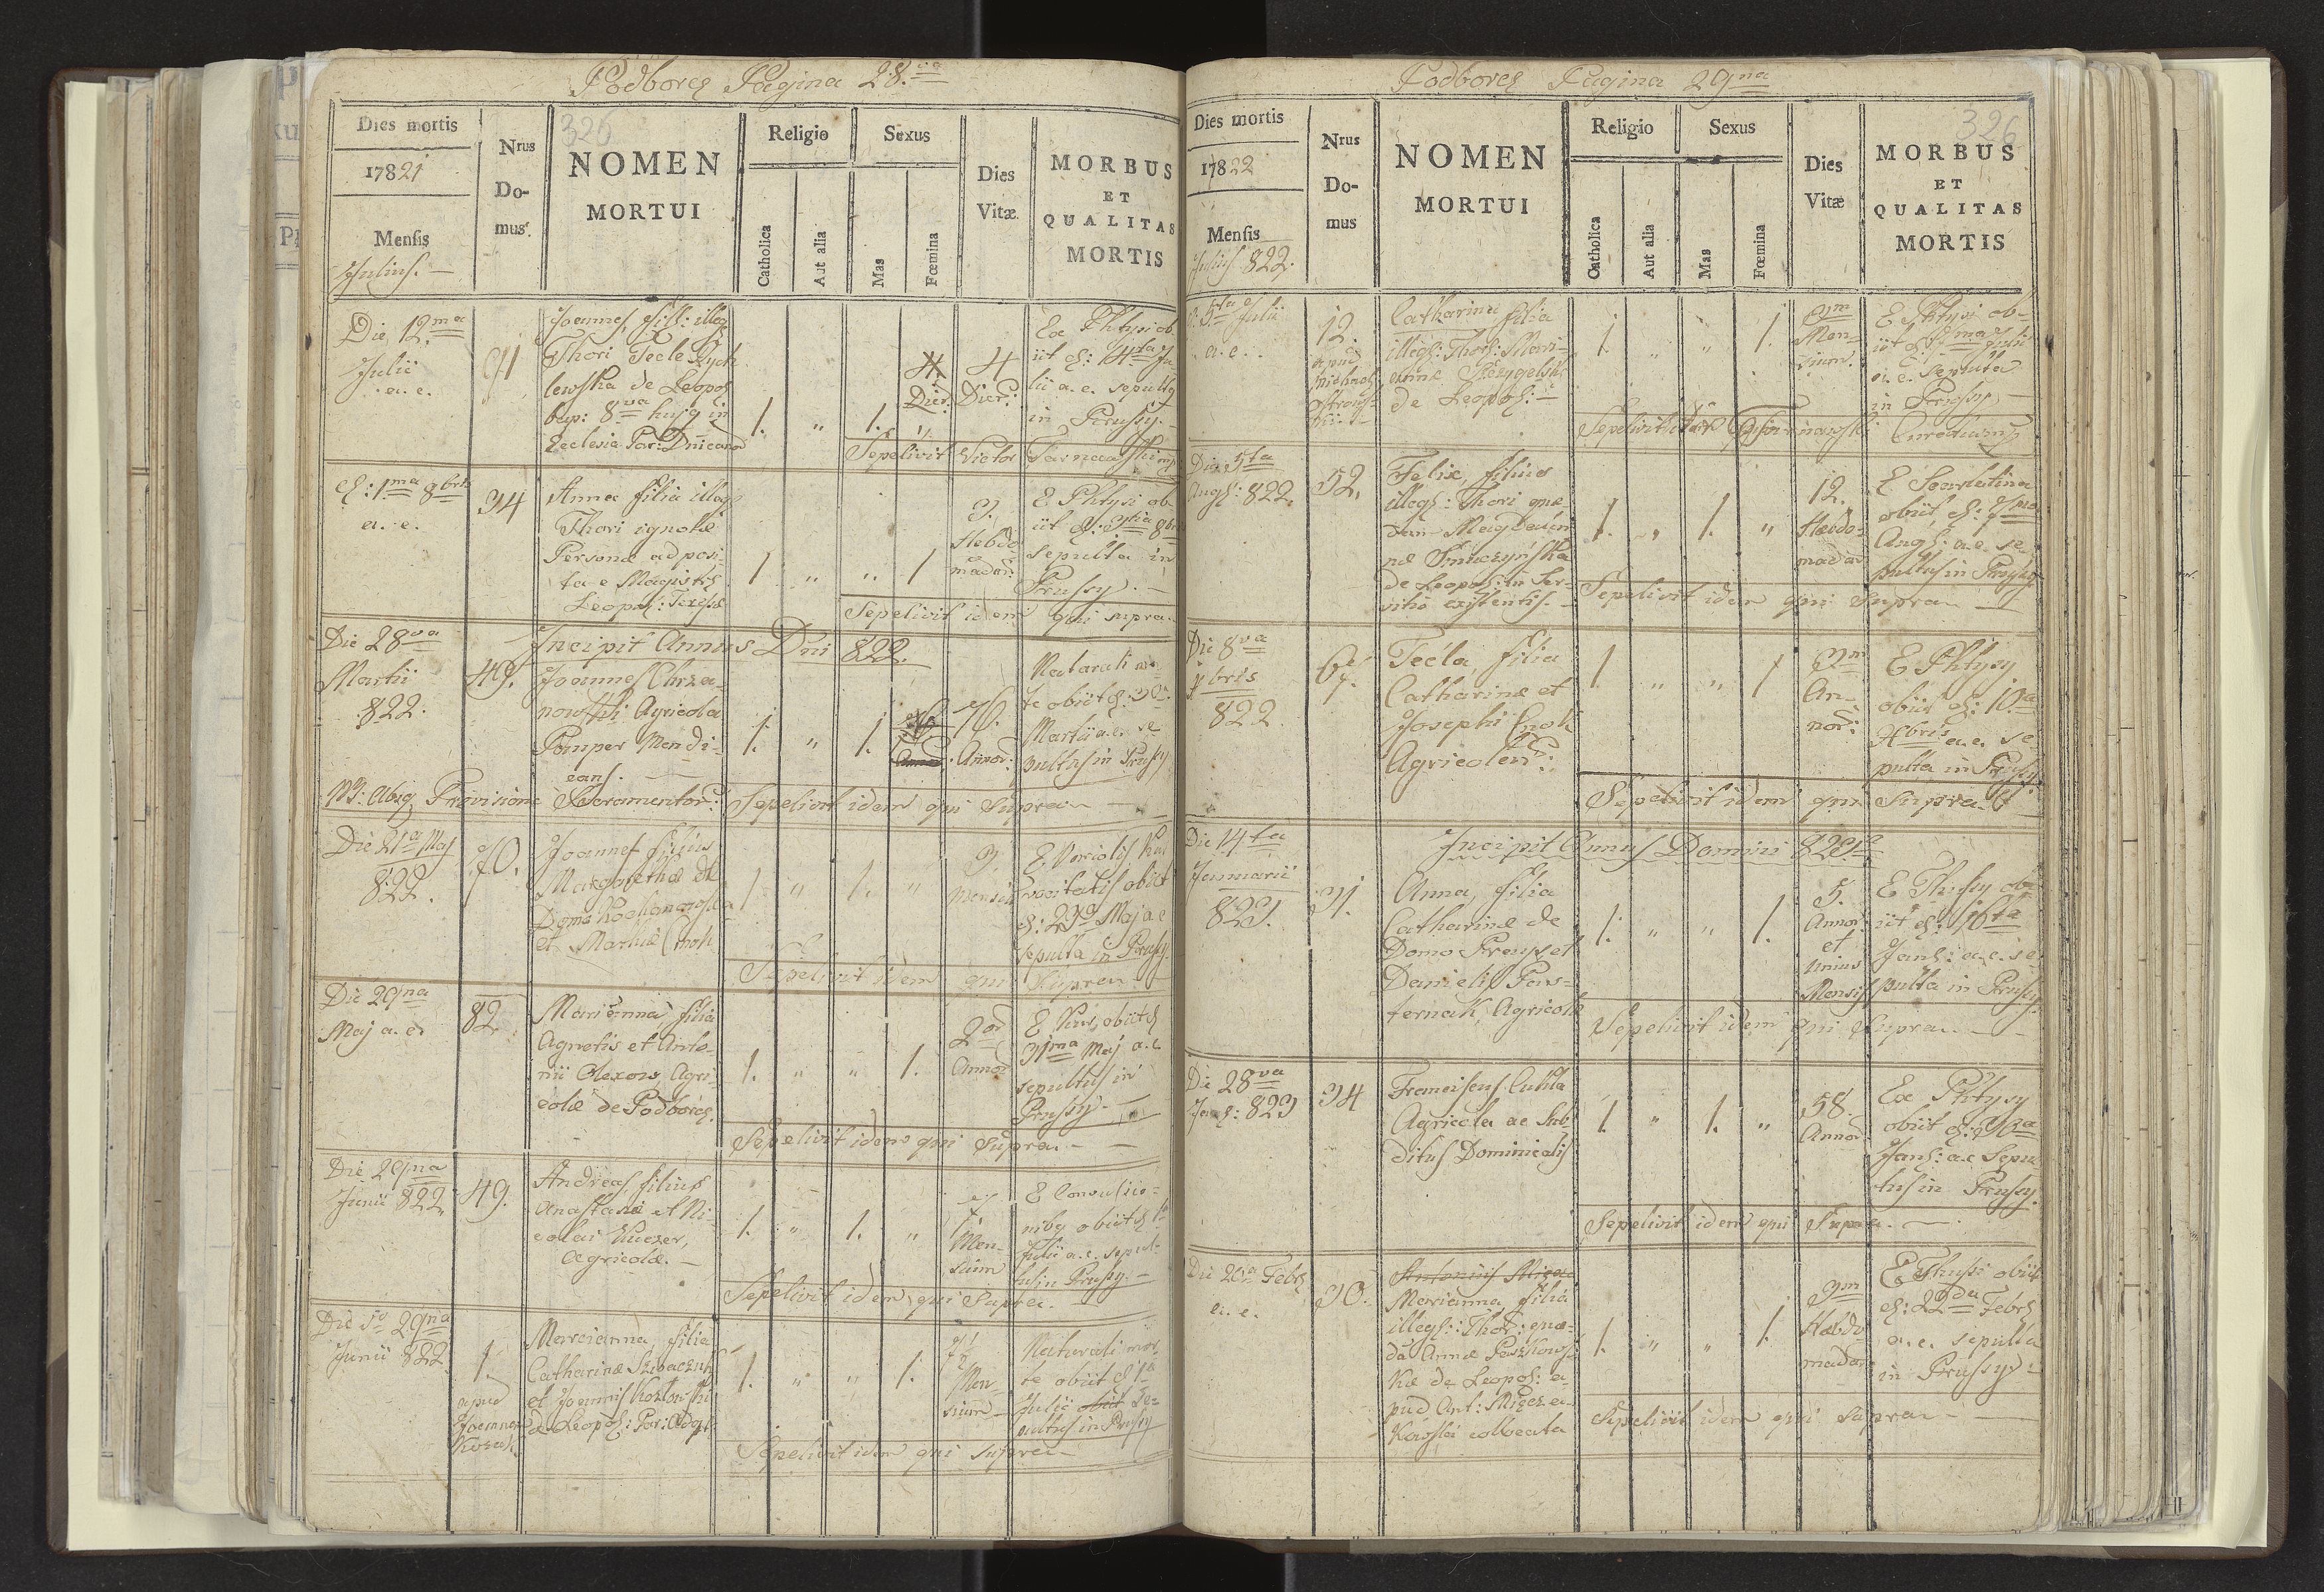 Podborce Pagina 28va
Dies mortis
1821
Mensis
Julius.
Nrus
Do-
mus.
325
NOMEN
MORTUI
Religio
Catholica
Aut alia
Sexus
Mas
Fœmina
Dies
Vitæ
MORBUS
ET
QUALITAS
MORTIS
Die 12ma
Julii
a. e.
91
Joannes, fil: illeg
Thori Tecle
lewska de Leopol.
bap: 8va hujq in
Ecclesia Par: Dnicano
1. " 1. "
4
Dier.
4
Dier:
Ex Phtysi ob
iit d: 14ta Ju
lii a. e. sepultq
in Prussy.
Sepelivit Victor
d: 1ma 8bris
a. e.
94
Anna filia illeg
Thori ignotæ
Personæ ad posi-
ta e Magistr
Leopol:
1 " " 1
3.
Hebdo-
madar:
E Phtysi ob
iit d: 3tia 8bris
sepulta in
Prussy.
Sepelivit idem qui supra.
Incipit Annus Dni 822.
Die 28va
Martii
822.
49.
Joannes Chrza-
nowski Agricola
Pauper Mendi-
cans.
1. " 1.
76.
Annor:
Naturali mo-
te obiit d: 30a
Martii a.e. se
pultus in Prussy
NB: Absq Provisione Sacramentor: Sepelivit idem qui supra
Die 21a Maj
822.
70.
Joannes filius
Margarethæ de
Domo
et
1 " 1. "
3
Mensiu
E Variolis
obiit
d: 23a Maj a e
sepulta in Prussy.
Sepelivit idem qui supra
Die 29na
Maj a. e.
82
Marianna filia
Agnetis et Anto-
nii Olexow Agri-
colæ de Podborce.
1. " " 1.
2or
Annor
E obiit d
31ma Maj a.e.
sepultus in
Prussy.
Sepelivit idem qui supra
Die 29na
Junii 822.
49.
Andreas, filius
Anastasiæ et Ni-
colai Kuczer,
Agricolæ.
1. " 1. "
7
Men-
sium
E Convulsio-
nibq obiit d 1a
Julii a. e. sepul-
tus in Prussy.
Sepelivit idem qui supra.
Die 29na
Junii 822.
1.
apud
Joannem
Kozak
Marianna filia
Catharinæ
et Joannis Kozlowski
de Leopol:
1. " " 1.
Men-
sium
Naturali mor
te obiit d 1a
Julii obiit se-
pultus in Prussy
Sepelivit idem qui supra
Podborce Pagina 29na
Dies mortis
1822
Mensis
Julius 822.
Nrus
Do-
mus
NOMEN
MORTUI
Religio
Catholica
Aut alia
Sexus
Mas
Fœmina
Dies
Vitæ
326
MORBUS
ET
QUALITAS
MORTIS
d: 5ta Julii
a. e.
12.
apud
Michael
Catharina filia
illegl: Thori: Mari-
annæ
de Leopol:
1. " " 1.
Men-
sium.
E Phtysi ob-
iit d: Julii
a. e. sepulta
in Prussy
Sepelivit
Die 5ta
Augl: 822.
52.
Felix, filius
illegl: Thori quæ
dam Magdale-
næ
de Leopol: in Ser-
vitio existentis.
1. " 1. "
12.
Hebdo-
madar
E Scarlatina
obiit d: 7ma
Augl: a.e. se-
pultus in Prussy
Sepelivit idem qui supra
Die 8va
Xbris
822
67.
Tecla, filia
Catharinæ et
Josephi
Agricolar:
1. " " 1
An-
nor:
E Phtysy
obiit d: 10a
Xbris a.e. se-
pulta in Prussy
Sepelivit idem qui supra
Incipit Annus Domini 823.
Die 14ta
Januarii
823.
31.
Anna, filia
Catharinæ de
Domo et
Danielis Pas-
ternak, Agricol
1. " " 1.
5.
Annor:
et
unius
Mensis
E Phtysy obi
iit d: 16ta
Janl: a.e. se
pulta in Prussy.
Sepelivit idem qui supra
Die 28va
Janl: 823
94
Franciscus
Agricola ac Sub-
ditus Dominicalis
1. " 1. "
58.
Annor
Ex Phtysy
obiit d: 30a
Janl: a.e. Sepul
tus in Prussy.
Sepelivit idem qui Supra.
Die 20a Febr
a. e.
90.
Antonius
Marianna filia
illegl: Thor: quæ-
da Annæ
de Leopol: a-
pud Ant:
collocata
1. " " 1.
Hebdo
madar
E Phtysi obiit
d: 22da Febr
a. e. sepulta
in Prussy
Sepelivit idem qui supra